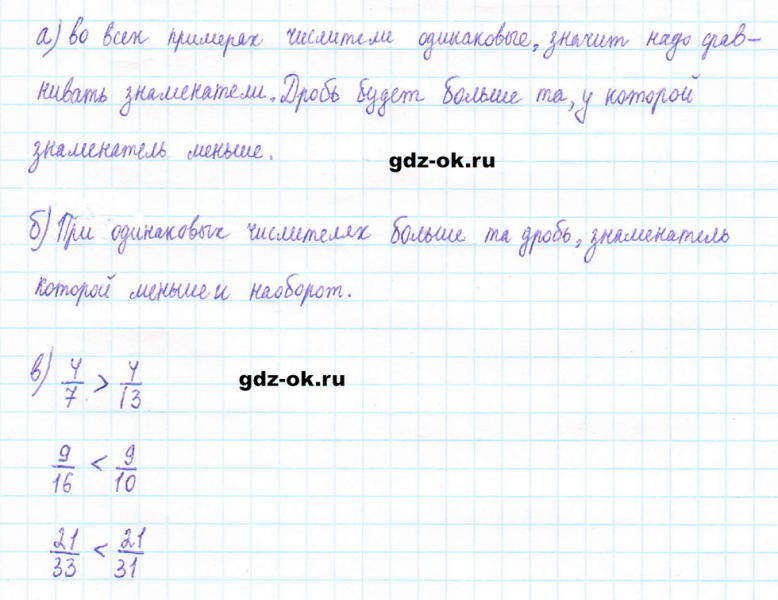 а) во всех примерах числители одинаковые, значит надо срав-
нивать знаменатели. Дробь будет больше та, у которой
знаменатель меньше.
gdz-ok.ru
б) При одинаковых числителях больше та дробь, знаменатель
которой меньше и наоборот.
в) 4/7 > 4/13
gdz-ok.ru
9/16 < 9/10
21/33 < 21/31